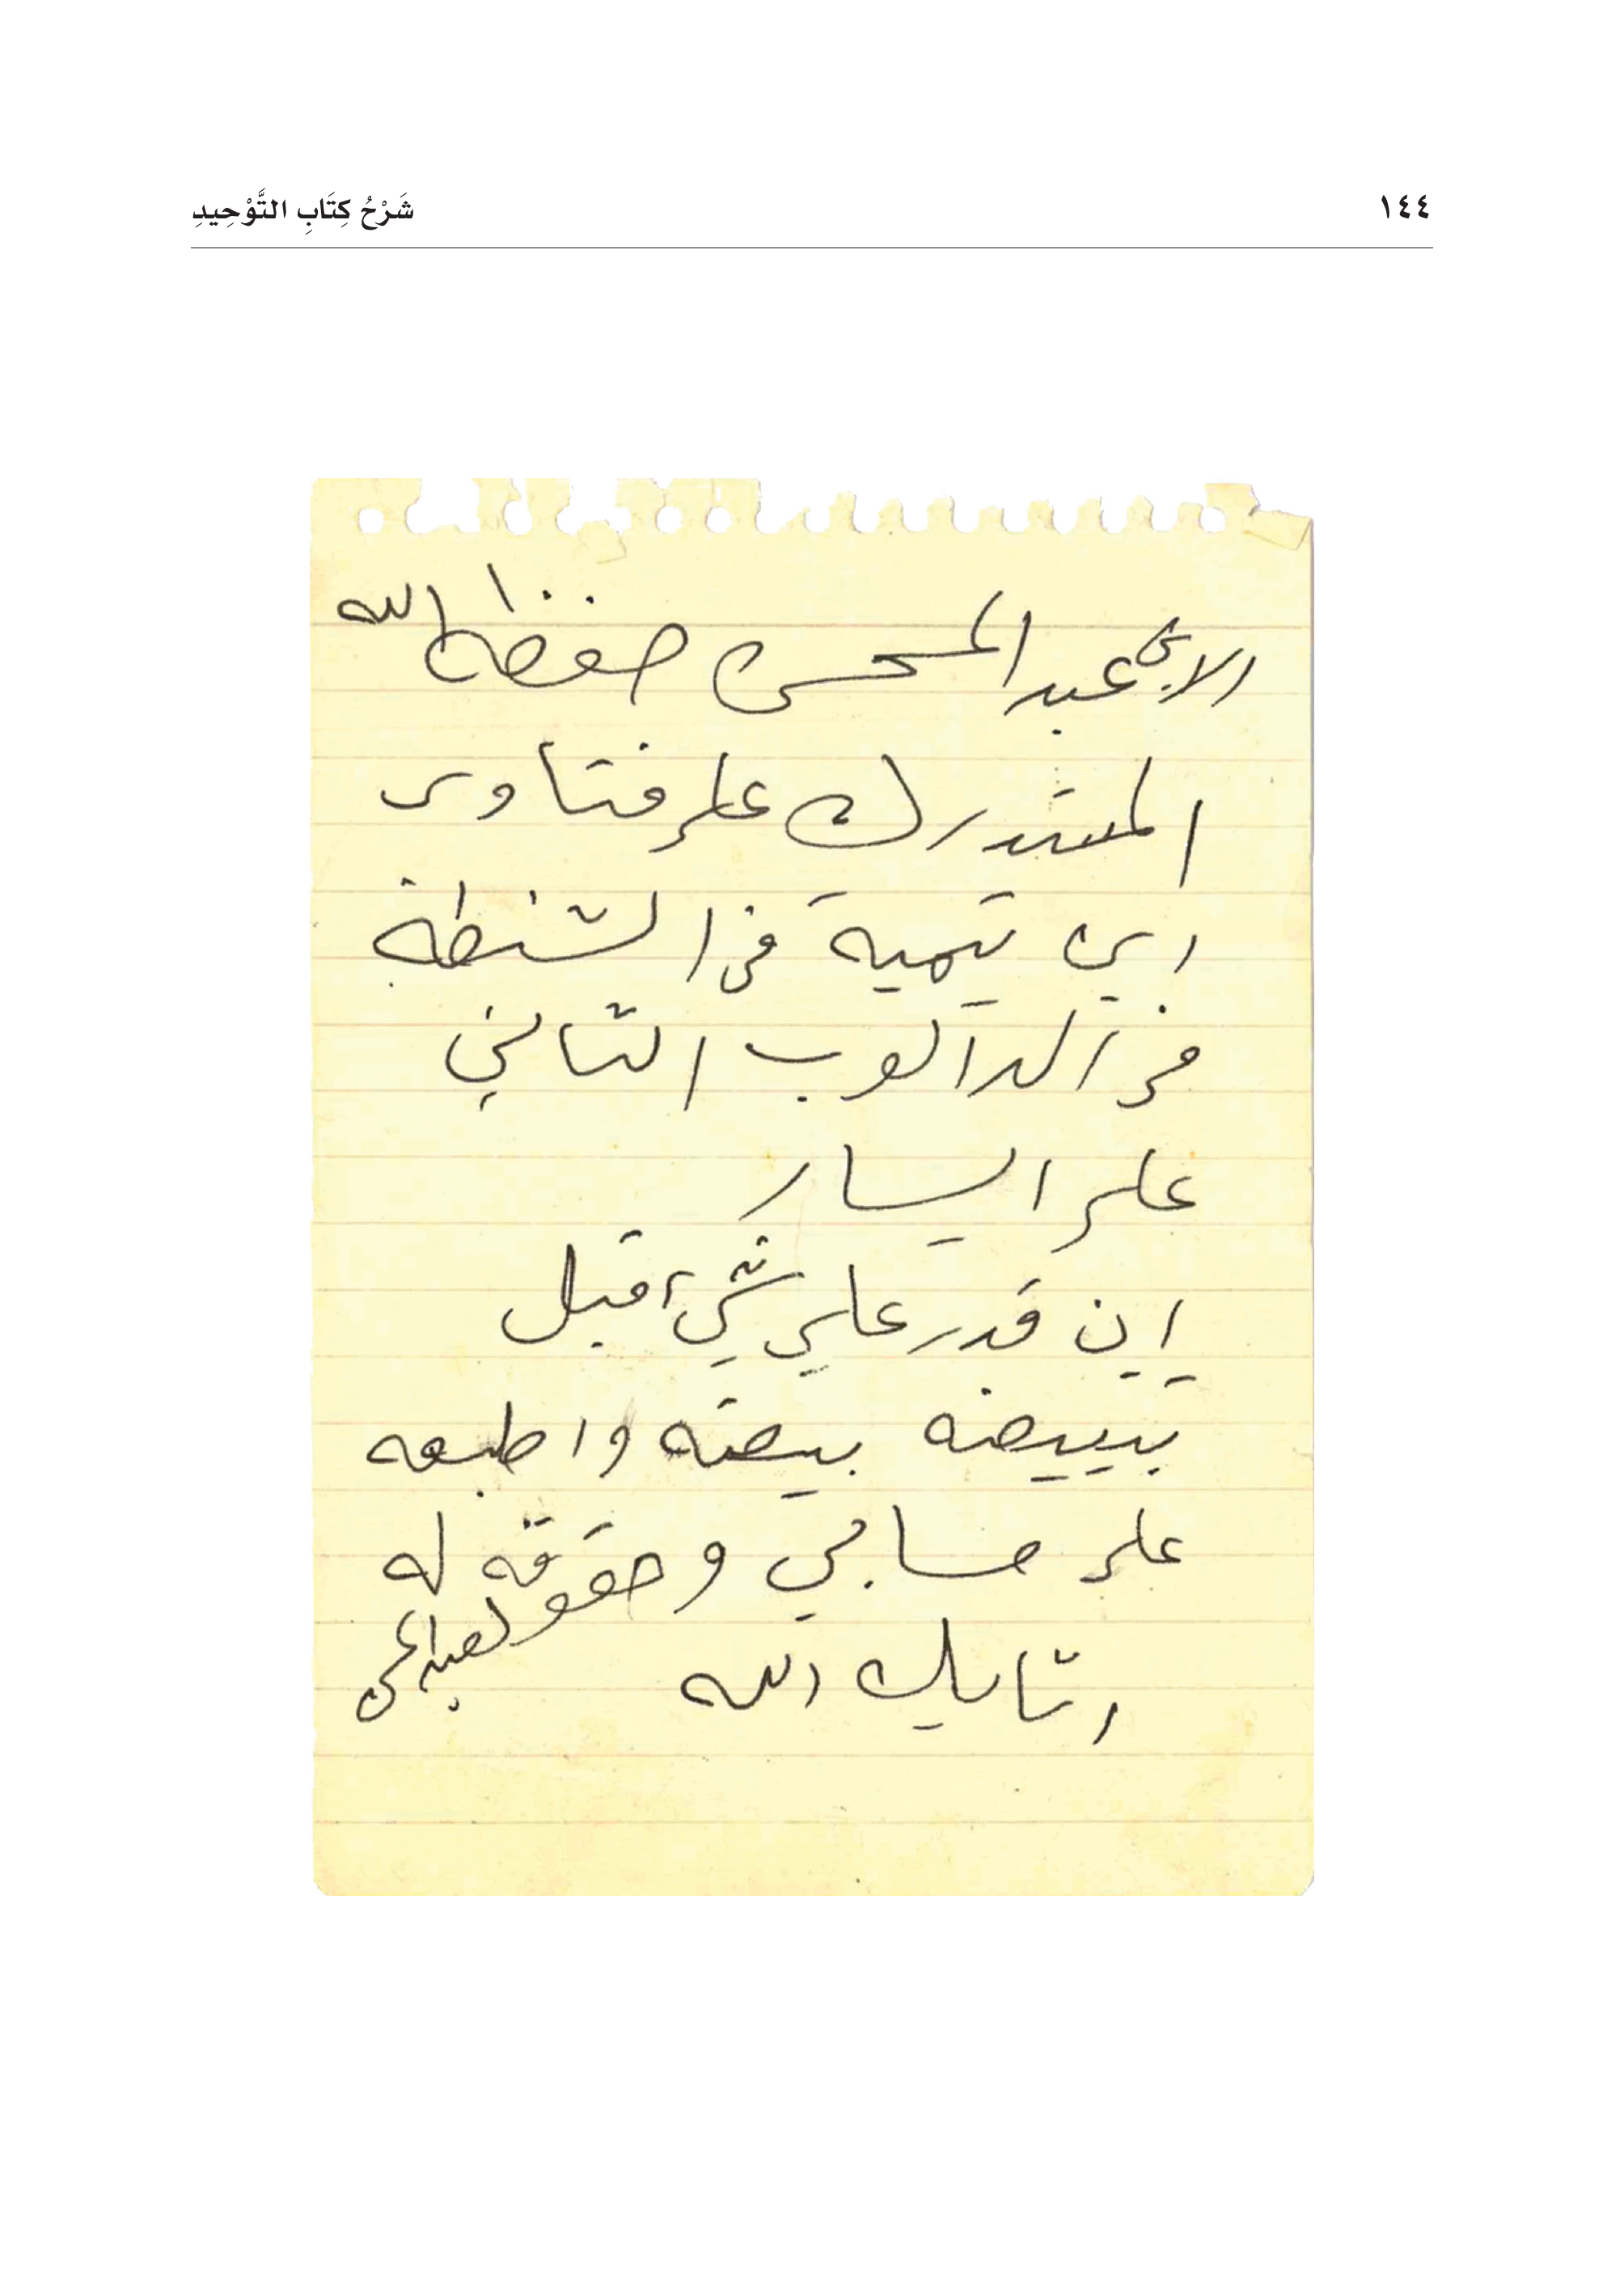 ١٤٤
شَرْحُ كِتَابِ التَّوْحِيدِ
الابن عبد المحسن حفظه الله
المستدرك على فتاوى
ابن تيمية في الشنطة
في الدالوب الثاني
على اليسار
إن قدر علي شيء قبل
تبييضه بيضه واطبعه
على حسابي وحقوقه له
لعبد المحسن
اثابك الله